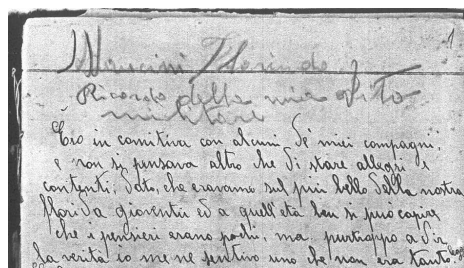 1
Mancini Florindo
Ricordo della mia vita
militare
Ero in comitiva con alcuni de' miei compagni,
e non si pensava altro che di stare allegri e
contenti, dato, che eravamo sul più bello della nostra
florida gioventù ed a quell'età ben si può capire
che i pensieri erano pochi, ma, purtroppo a dir
la verità io me ne sentivo uno che non era tanto